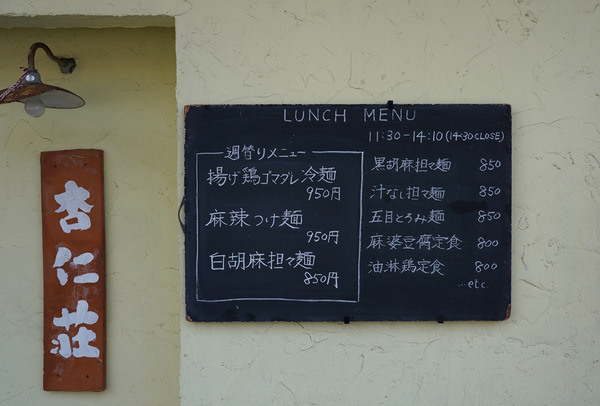 杏仁荘
LUNCH MENU
11:30-14:10 (14:30 CLOSE)
週替りメニュー
揚げ鶏ゴマダレ冷麺
950円
麻辣つけ麺
950円
白胡麻担々麺
850円
黒胡麻担々麺 850
汁なし担々麺 850
五目とろみ麺 850
麻婆豆腐定食 800
油淋鶏定食 800
...etc.